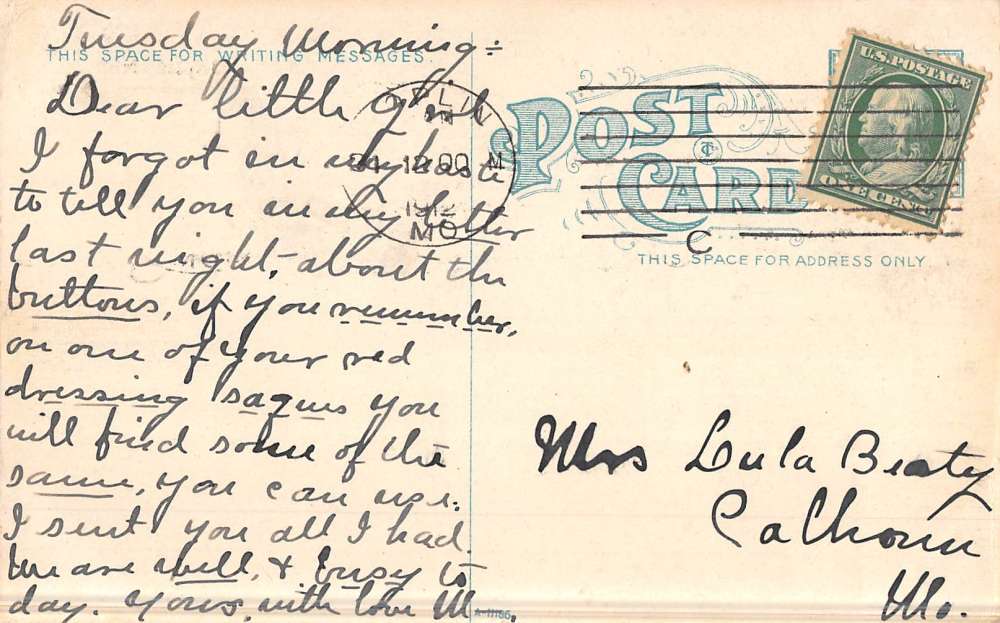 Tuesday Morning:
THIS SPACE FOR WRITING MESSAGES.
Dear little girl
I forgot in my haste
to tell you in my letter
last night, about the
buttons, if you remember,
on one of your red
dressing saques you
will find some of the
same, you can use.
I sent you all I had.
We are well, & busy to
day. Yours, with love M.
PLIN
12 00 M
1912
MO
POST
CARD
U.S. POSTAGE
ONE CENT
C
THIS SPACE FOR ADDRESS ONLY
Mrs Lula Beaty
Calhoun
Mo.
A-11166